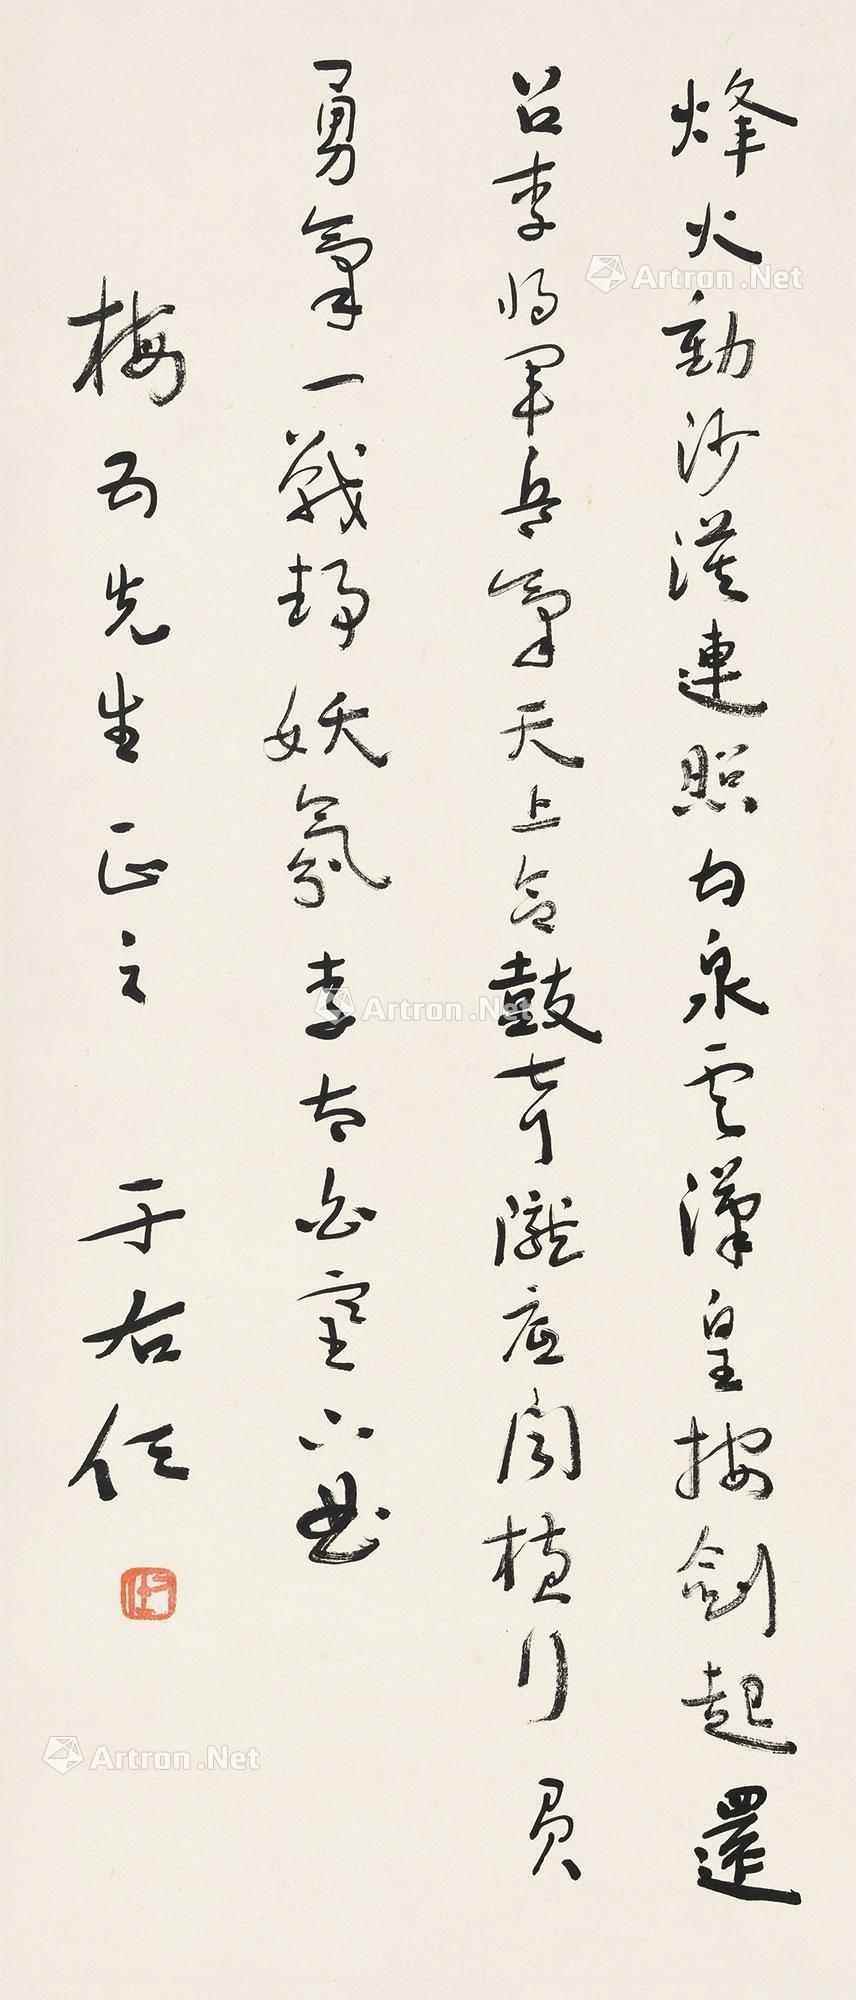 烽火動沙漠連照甘泉雲漢皇按劍起還
召李將軍兵氣天上合鼓聲隴底聞橫行負
勇氣一戰靜妖氛李太白塞下曲
梅五先生正之 于右任
Artron.Net
Artron.Net
Artron.Net